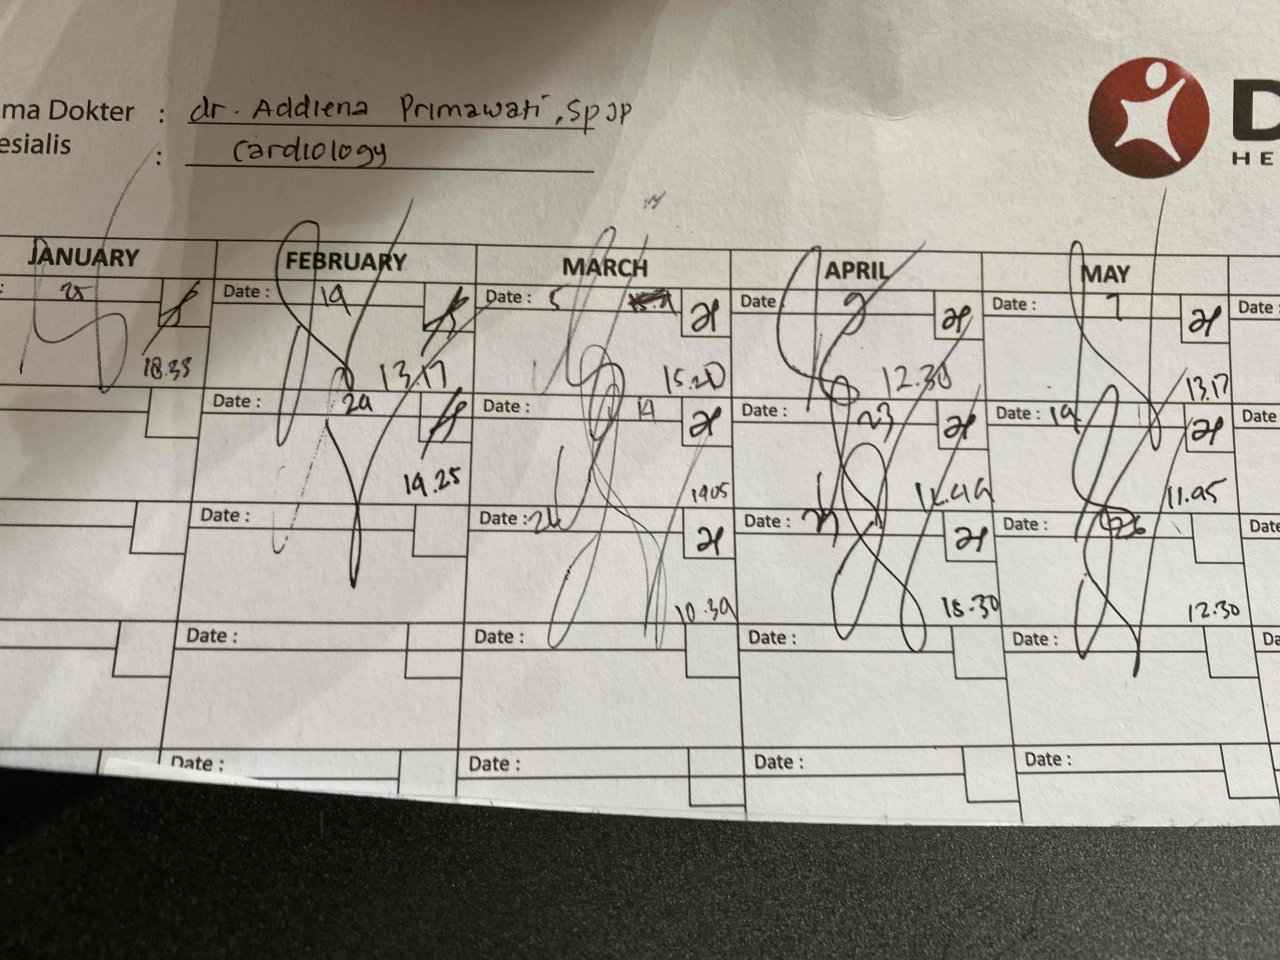 ma Dokter : dr. Addiena Primawati, SpJP
esialis : Cardiology
D
HE
JANUARY FEBRUARY MARCH APRIL MAY
: 25 Date : 19 Date : 5 Date 9 Date : 7 Date :
18.35 13.17 15.20 12.30 13.17
Date : 29 Date : 19 Date : 23 Date : 19 Date
19.25 1905 11.95
Date : Date : 26 Date : Date : 26 Date
10.39 18.30 12.30
Date : Date : Date : Date : Da
Date : Date : Date : Date :